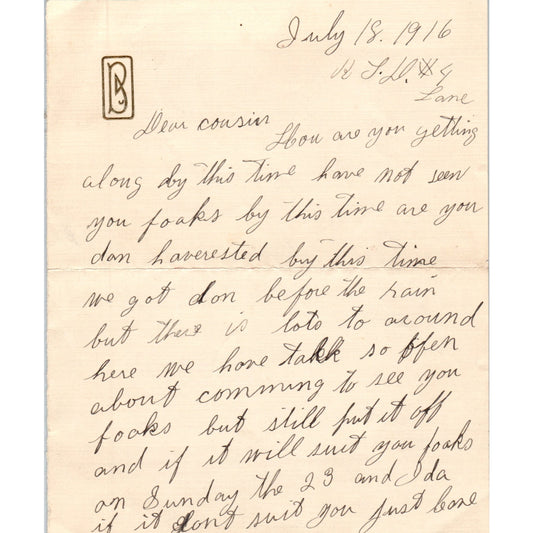 July 18. 1916
R F. D. #4
Lane
Dear cousin
How are you getting
along by this time have not seen
you foaks by this time are you
don haverested by this time
we got don before the rain
but there is lots to around
here we have talk so offen
about comming to see you
foaks but still put it off
and if it will suit you foaks
on Sunday the 23 and Ida
if it dont suit you just leave